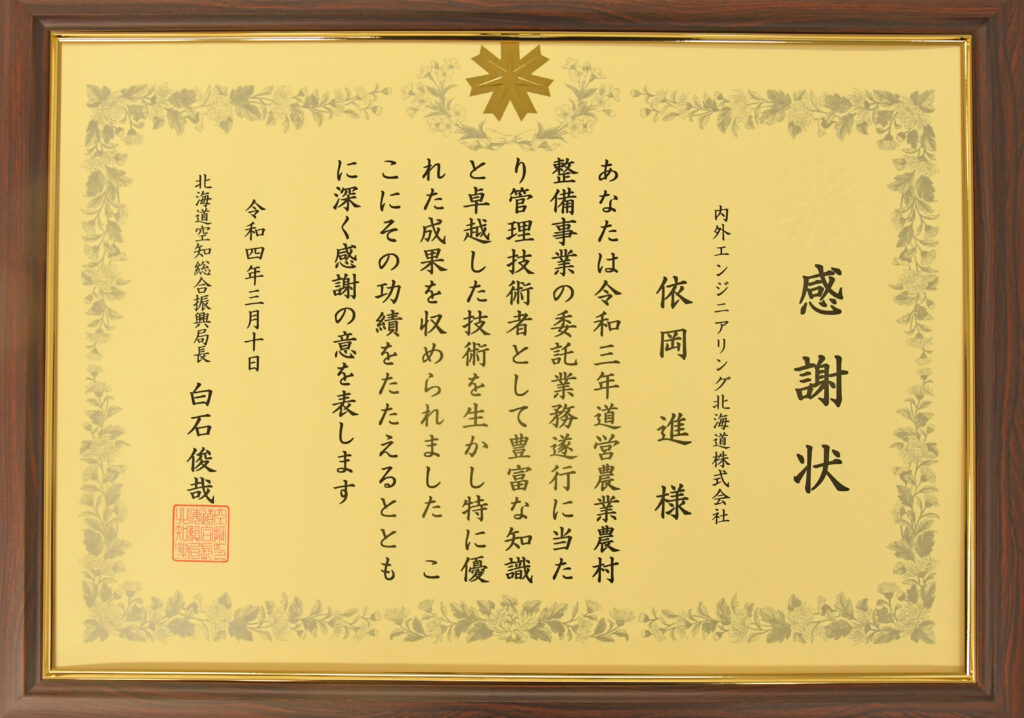 感謝状
内外エンジニアリング北海道株式会社
依岡 進 様
あなたは令和三年道営農業農村
整備事業の委託業務遂行に当た
り管理技術者として豊富な知識
と卓越した技術を生かし特に優
れた成果を収められました こ
こにその功績をたたえるととも
に深く感謝の意を表します
令和四年三月十日
北海道空知総合振興局長 白石俊哉